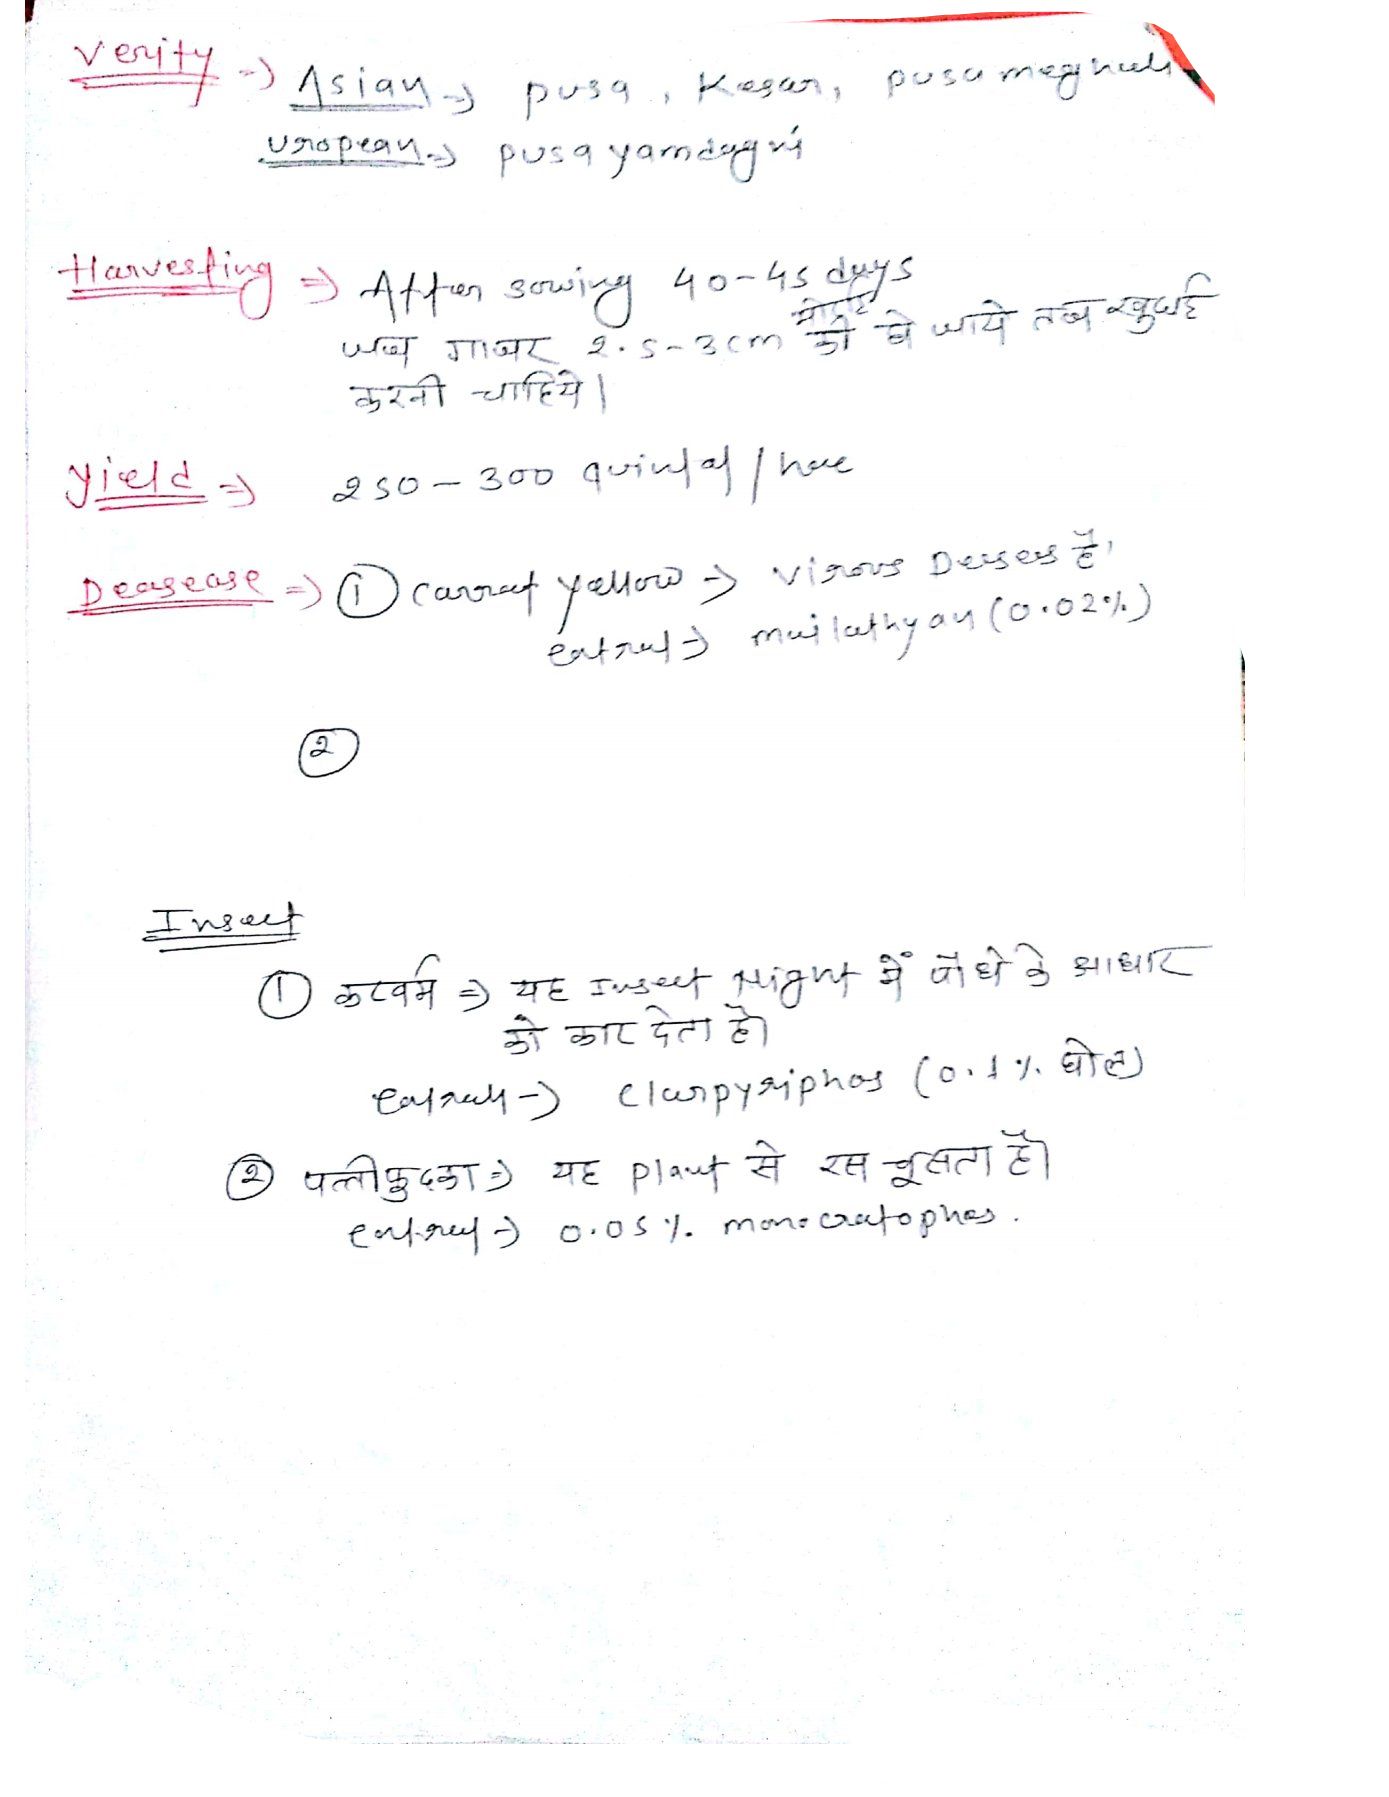 Verity => Asian => pusa, Kesar, pusa meghali
Uropean => pusa yamdagni
Harvesting => After sowing 40-45 days
जब गाजर 2.5-3cm मोटाई की हो जाये तब खुदाई
करनी चाहिये।
Yield => 250-300 quintal / hac
Deasease => ① Carrat Yellow -> Virous Deseses है।
=> (0.02%)
②
Insect
① कटवर्म => यह Insect Night में पौधे के आधार
को काट देता है।
-> Clorpyriphos (0.1% घोल)
② पत्तीफुदका => यह plant से रस चूसता है।
-> 0.05% monocratophos.